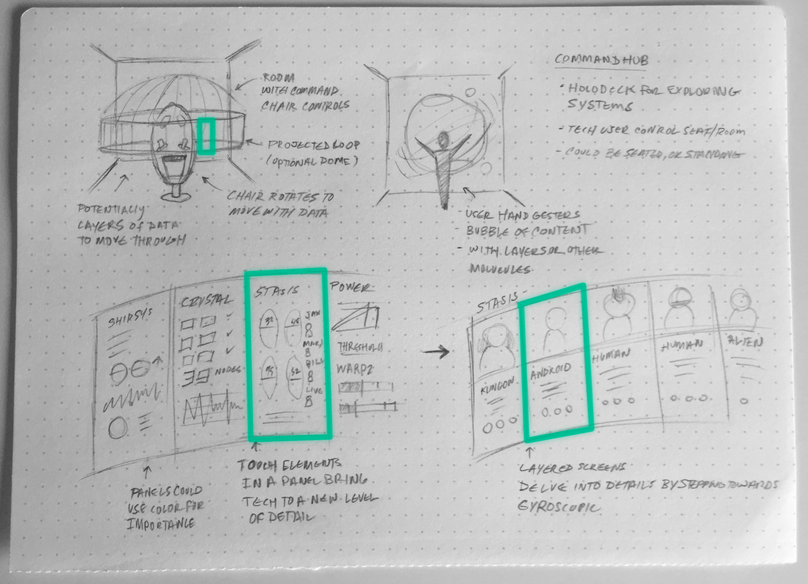 ROOM
WITH COMMAND
CHAIR CONTROLS
PROJECTED LOOP
(OPTIONAL DOME)
CHAIR ROTATES TO
MOVE WITH DATA
POTENTIALLY
LAYERS OF DATA
TO MOVE THROUGH
USER HAND GESTERS
BUBBLE OF CONTENT
- WITH LAYERS OR OTHER
MOLUCULES
COMMAND HUB
- HOLODECK FOR EXPLORING
SYSTEMS
- TECH USER CONTROL SEAT/ROOM
- COULD BE SEATED, OR STANDING
SHIPSYS
CRYSTAL
NODES
STASIS
JAX
POWER
THRESHOLD
WARP2
PANELS COULD
USE COLOR FOR
IMPORTANCE
TOUCH ELEMENTS
IN A PANEL BRING
TECH TO A NEW LEVEL
OF DETAIL
STASIS-
KLINGON
ANDROID
HUMAN
HUMAN
ALIEN
LAYERED SCREENS
DELVE INTO DETAILS BY STEPPING TOWARDS
GYROSCOPIC